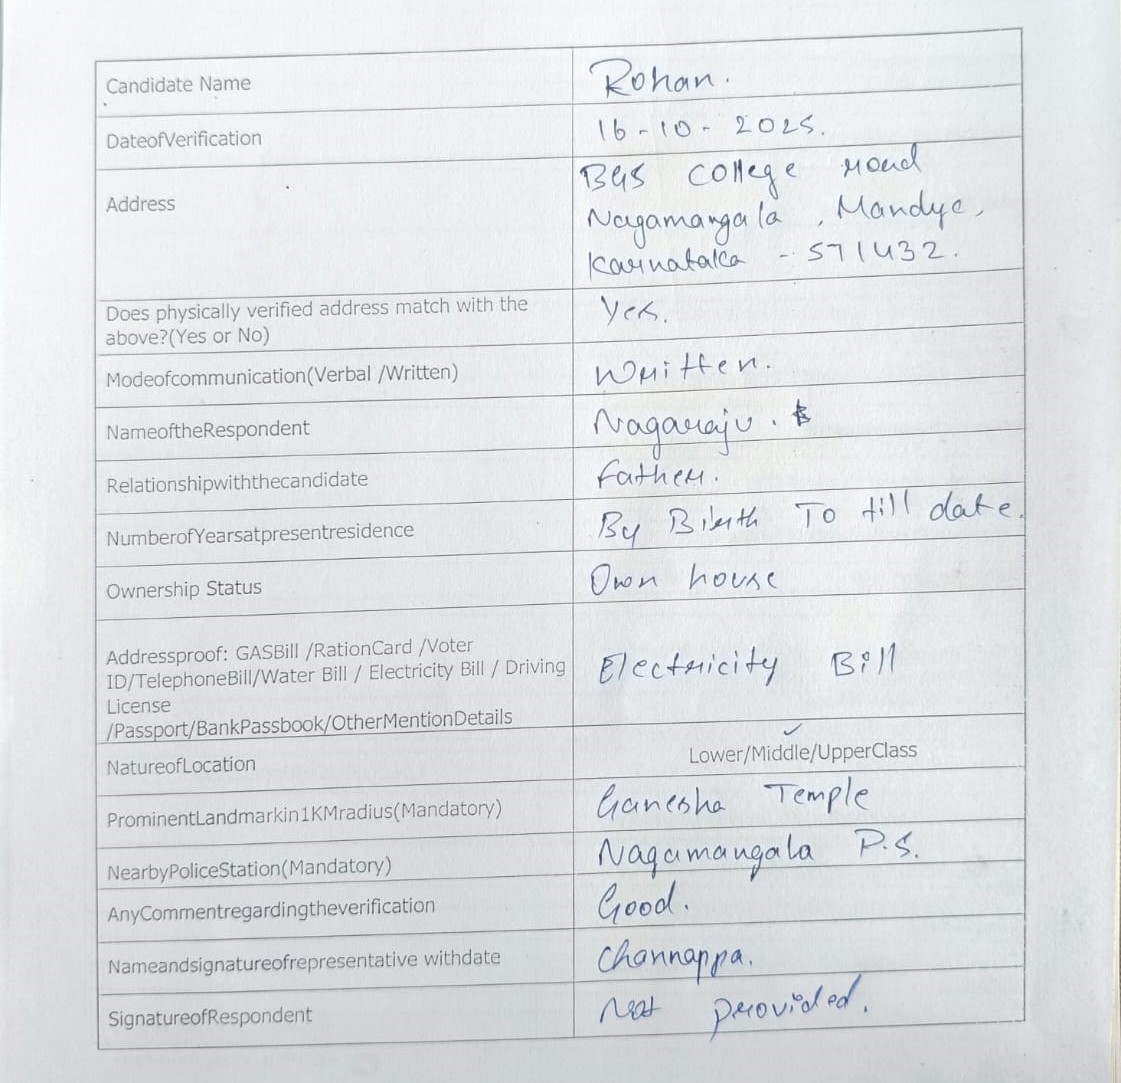 Candidate Name Rohan.
DateofVerification 16-10-2025.
Address BGS College road
Nagamangala, Mandya,
Karnataka - 571432.
Does physically verified address match with the above?(Yes or No) Yes.
Modeofcommunication(Verbal /Written) Written.
NameoftheRespondent Nagaraju.
Relationshipwiththecandidate Father.
NumberofYearsatpresentresidence By Birth To till date.
Ownership Status Own house
Addressproof: GASBill /RationCard /Voter
ID/TelephoneBill/Water Bill / Electricity Bill / Driving Electricity Bill
License
/Passport/BankPassbook/OtherMentionDetails
NatureofLocation Lower/Middle/UpperClass
ProminentLandmarkin1KMradius(Mandatory) Ganesha Temple
NearbyPoliceStation(Mandatory) Nagamangala P.S.
AnyCommentregardingtheverification Good.
Nameandsignatureofrepresentative withdate Channappa.
SignatureofRespondent Not provided.